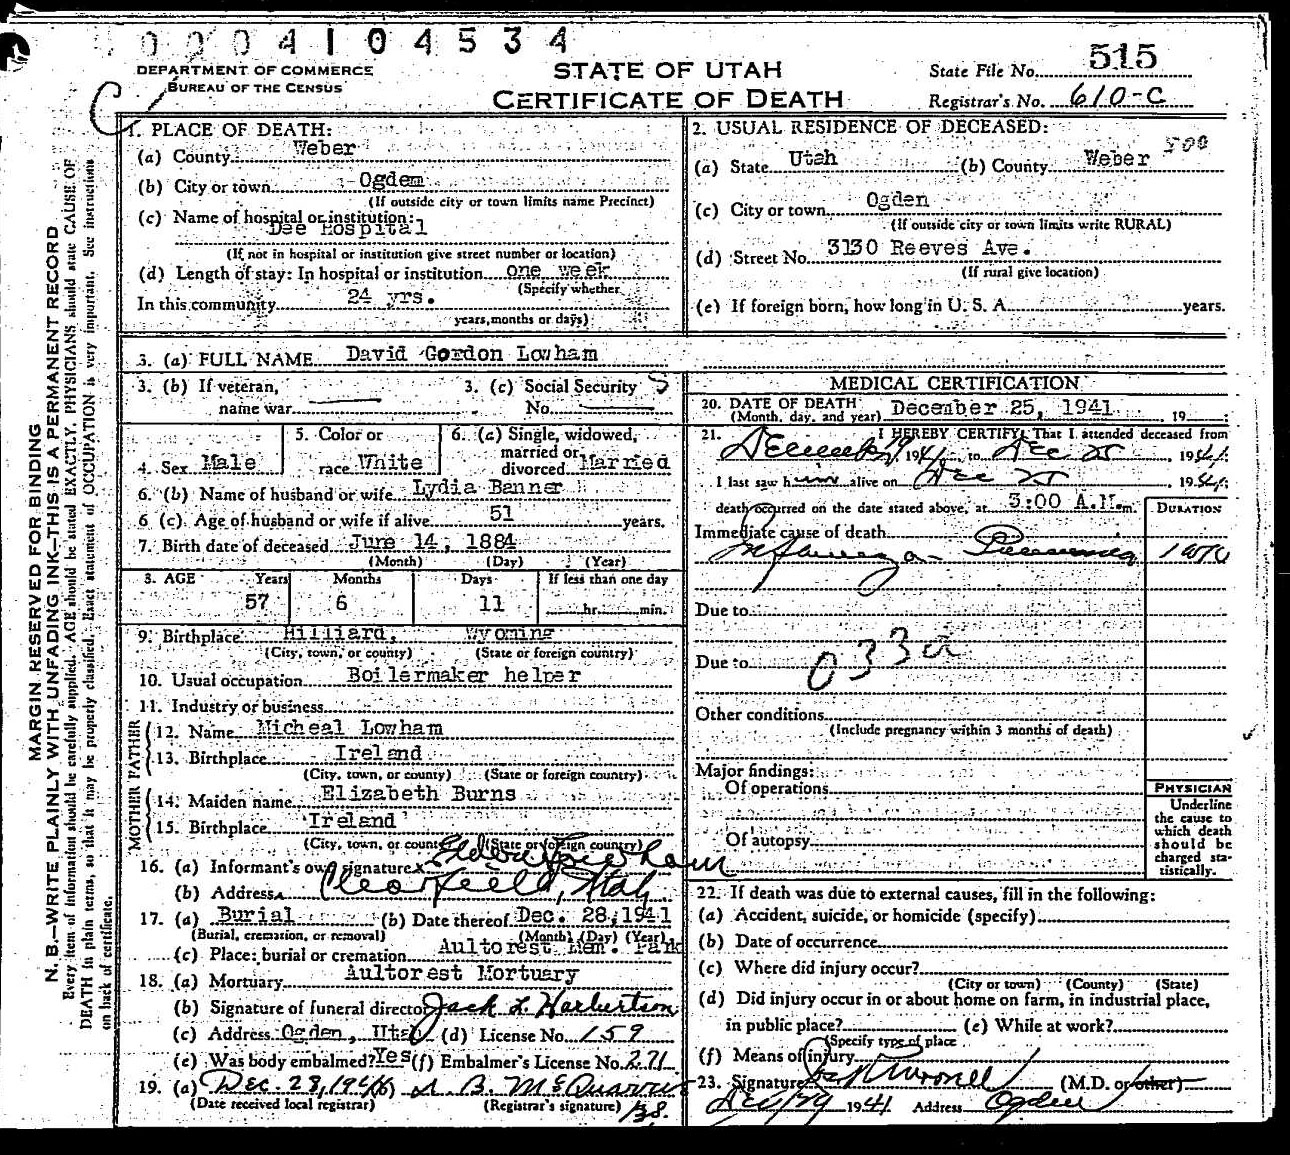 0004104534
DEPARTMENT OF COMMERCE
BUREAU OF THE CENSUS
STATE OF UTAH
CERTIFICATE OF DEATH
State File No. 515
Registrar's No. 610-C
MARGIN RESERVED FOR BINDING
N. B.—WRITE PLAINLY WITH UNFADING INK—THIS IS A PERMANENT RECORD
Every item of information should be carefully supplied. AGE should be stated EXACTLY. PHYSICIANS should state CAUSE OF
DEATH in plain terms, so that it may be properly classified. Exact statement of OCCUPATION is very important. See instructions
on back of certificate.
1. PLACE OF DEATH:
(a) County Weber
(b) City or town Ogden
(If outside city or town limits name Precinct)
(c) Name of hospital or institution:
Dee Hospital
(If not in hospital or institution give street number or location)
(d) Length of stay: In hospital or institution one week
(Specify whether
In this community 24 yrs.
years, months or days)
2. USUAL RESIDENCE OF DECEASED:
(a) State Utah (b) County Weber
(c) City or town Ogden
(If outside city or town limits write RURAL)
(d) Street No. 3130 Reeves Ave.
(If rural give location)
(e) If foreign born, how long in U. S. A. years.
3. (a) FULL NAME David Gordon Lowham
3. (b) If veteran,
name war
3. (c) Social Security
No.
4. Sex Male
5. Color or
race White
6. (a) Single, widowed,
married or
divorced Married
6. (b) Name of husband or wife Lydia Banner
6 (c). Age of husband or wife if alive 51 years.
7. Birth date of deceased June 14, 1884
(Month) (Day) (Year)
8. AGE Years Months Days If less than one day
57 6 11 hr. min.
9. Birthplace Hilliard, Wyoming
(City, town, or county) (State or foreign country)
10. Usual occupation Boilermaker helper
11. Industry or business
FATHER
12. Name Micheal Lowham
13. Birthplace Ireland
(City, town, or county) (State or foreign country)
MOTHER
14. Maiden name Elizabeth Burns
15. Birthplace Ireland
(City, town, or county) (State or foreign country)
16. (a) Informant's own signature Lowham
(b) Address Clearfield, Utah
17. (a) Burial (b) Date thereof Dec. 28, 1941
(Burial, cremation, or removal) (Month) (Day) (Year)
(c) Place: burial or cremation Aultorest Mem. Park
18. (a) Mortuary Aultorest Mortuary
(b) Signature of funeral director Jack L. Harbertson
(c) Address Ogden, Utah (d) License No. 159
(e) Was body embalmed? Yes (f) Embalmer's License No. 271
19. (a) Dec. 28, 194 (b)
(Date received local registrar) (Registrar's signature)
MEDICAL CERTIFICATION
20. DATE OF DEATH
(Month, day, and year) December 25, 1941 19
21. I HEREBY CERTIFY, That I attended deceased from
December 19 1941, to Dec 25, 1941
I last saw him alive on Dec 25 1941;
death occurred on the date stated above, at 3:00 A.M. m.
DURATION
Immediate cause of death
Influenza - Pneumonia 1 wk
Due to
Due to 033a
Other conditions
(Include pregnancy within 3 months of death)
Major findings:
Of operations
Of autopsy
PHYSICIAN
Underline
the cause to
which death
should be
charged sta-
tistically.
22. If death was due to external causes, fill in the following:
(a) Accident, suicide, or homicide (specify)
(b) Date of occurrence
(c) Where did injury occur?
(City or town) (County) (State)
(d) Did injury occur in or about home on farm, in industrial place,
in public place? (e) While at work?
(Specify type of place
(f) Means of injury
23. Signature (M.D. or other)
1941 Address Ogden